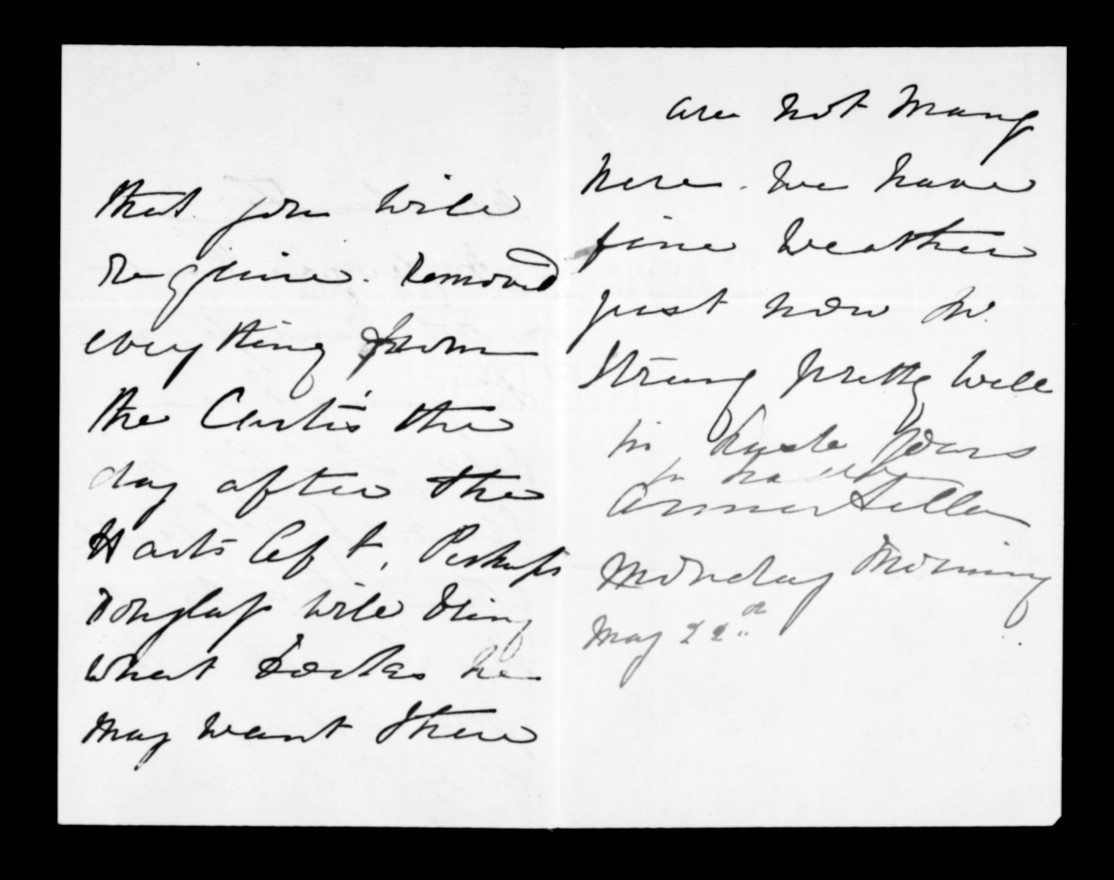 that you will
require. Removed
every thing from
the Curtis' the
day after the
Harts left, Perhaps
Douglass will bring
what books he
may want there
are not many
here. We have
fine weather
just now Mr.
Strang pretty well
in haste yours
in haste
Monday Morning
May 22nd